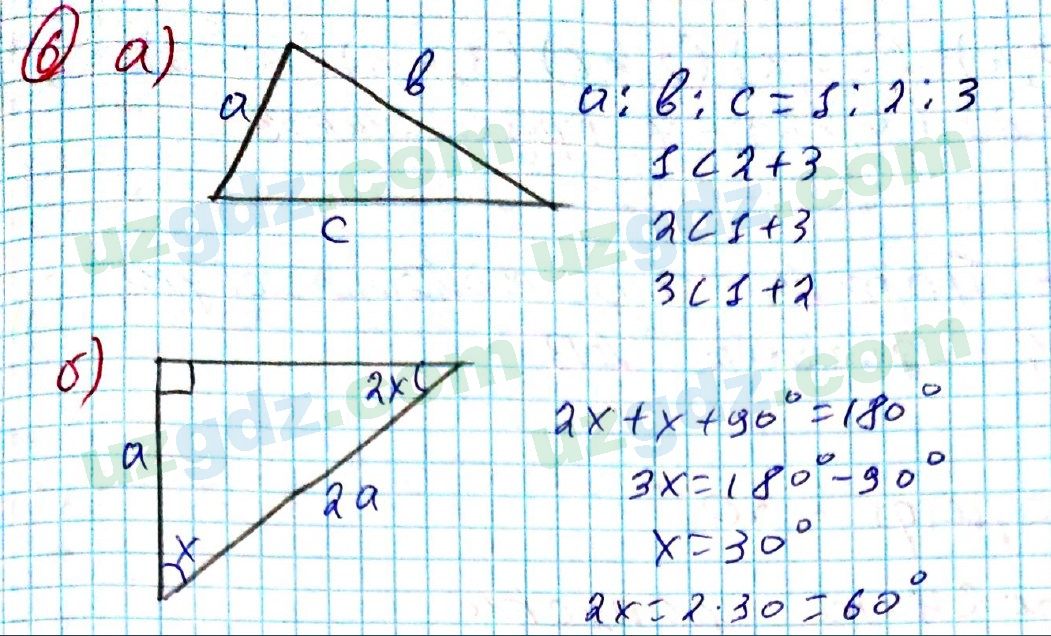 6 а)
a
b
c
a : b : c = 1 : 2 : 3
1 < 2 + 3
2 < 1 + 3
3 < 1 + 2
б)
2x
a
2a
x
2x + x + 90° = 180°
3x = 180° - 90°
x = 30°
2x = 2 · 30 = 60°
uzgdz.com
uzgdz.com
uzgdz.com
uzgdz.com